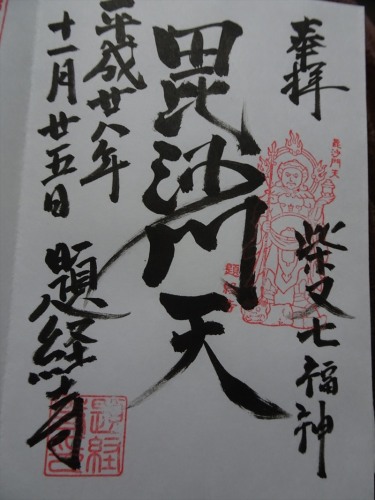 奉拝
柴又七福神
毘沙門天
平成廿八年
十一月廿五日
題経寺
毘沙門天
題経